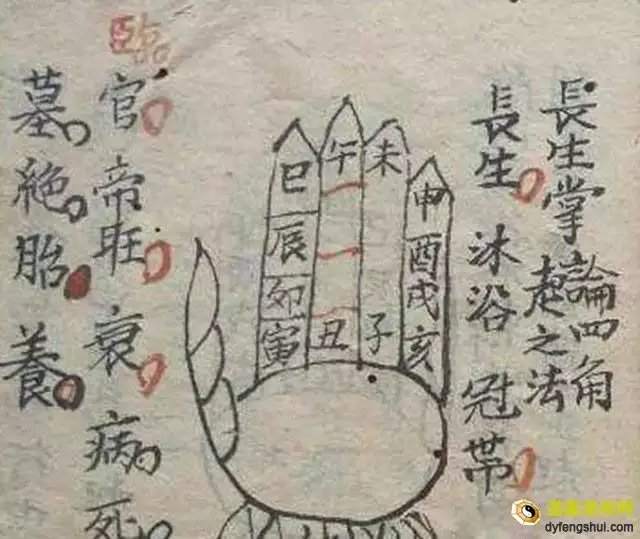 長生掌
論四角
起之法
長生 沐浴 冠帶
巳
午
未
申
辰
酉
卯
戌
寅
丑
子
亥
臨官 帝旺 衰 病 死
墓 絕 胎 養
dyfengshui.com